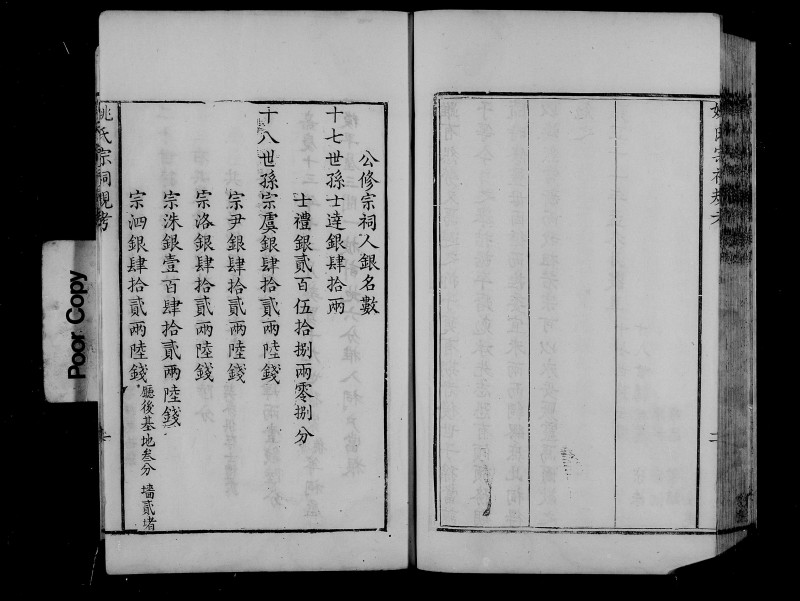 姚氏宗祠規考
二
公修宗祠人銀名數
十七世孫士達銀肆拾兩
士禮銀貳百伍拾捌兩零捌分
十八世孫宗虞銀肆拾貳兩陸錢
宗尹銀肆拾貳兩陸錢
宗洛銀肆拾貳兩陸錢
宗洙銀壹百肆拾貳兩陸錢
宗泗銀肆拾貳兩陸錢 廳後基地叁分 墻貳堵
姚氏宗祠規考
Poor Copy